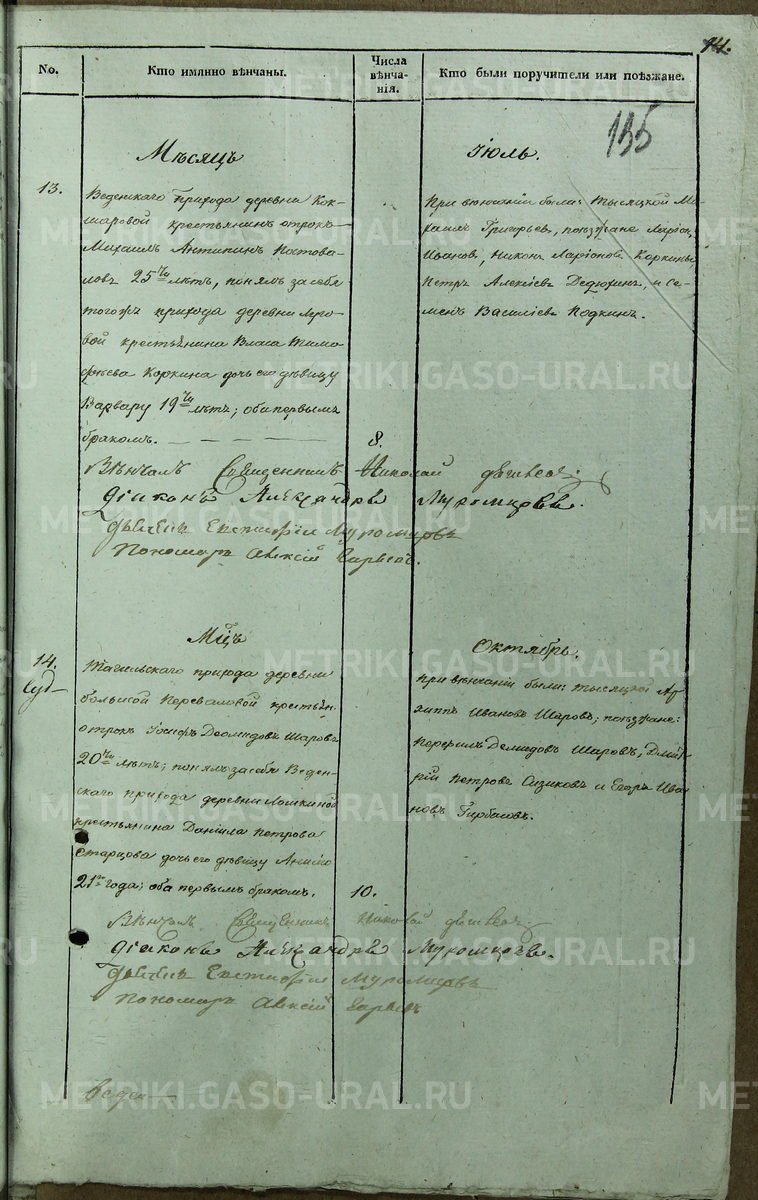 14.
No.
Кто имянно вѣнчаны.
Числа вѣнча-
нія.
Кто были поручители или поѣзжане.
155
Мѣсяцъ
Іюль.
13.
Веденскаго Прихода деревни Кок-
шаровой крестьянинъ отрокъ
Михаилъ Антипинъ Постова-
ловъ 25ти лѣтъ, понялъ за себя
тогожъ прихода деревни
вой крестьянина Власа Тимо-
фѣева Коркина дочь его дѣвицу
Варвару 19ти лѣтъ; оба первымъ
бракомъ.
8.
При вѣнчаніи были: тысяцкой Ми-
хаилъ Григорьевъ, поѣзжане Ларіонъ
Ивановъ, Никонъ Ларіоновъ Коркины
Петръ Алексіевъ Дедюхинъ, и Се-
менъ Василіевъ Подкинъ.
Вѣнчалъ Священникъ Николай
Діаконъ Александръ Муромцовъ.
Пономарь Алексій
Мцъ
Октябрь.
14.
Тагильскаго прихода деревни
большой Переваловой крестьян.
отрокъ Іосифъ Деомидовъ Шаровъ
20ти лѣтъ; понялъ за себя Веден-
скаго прихода деревни Лошкиной
крестьянина Даніила Петрова
Старцова дочь его дѣвицу Анну
21го года; оба первымъ бракомъ.
10.
при вѣнчаніи были: тысяцкой Ар-
хиппъ Ивановъ Шаровъ; поѣзжане:
Перфилъ Демидовъ Шаровъ, Дмит-
рій Петровъ Сизиковъ и Егоръ Ива-
новъ Горбасовъ.
Вѣнчалъ Священникъ Николай
Діаконъ Александръ Муромцовъ.
Пономарь Алексій
Веден
METRIKI.GASO-URAL.RU